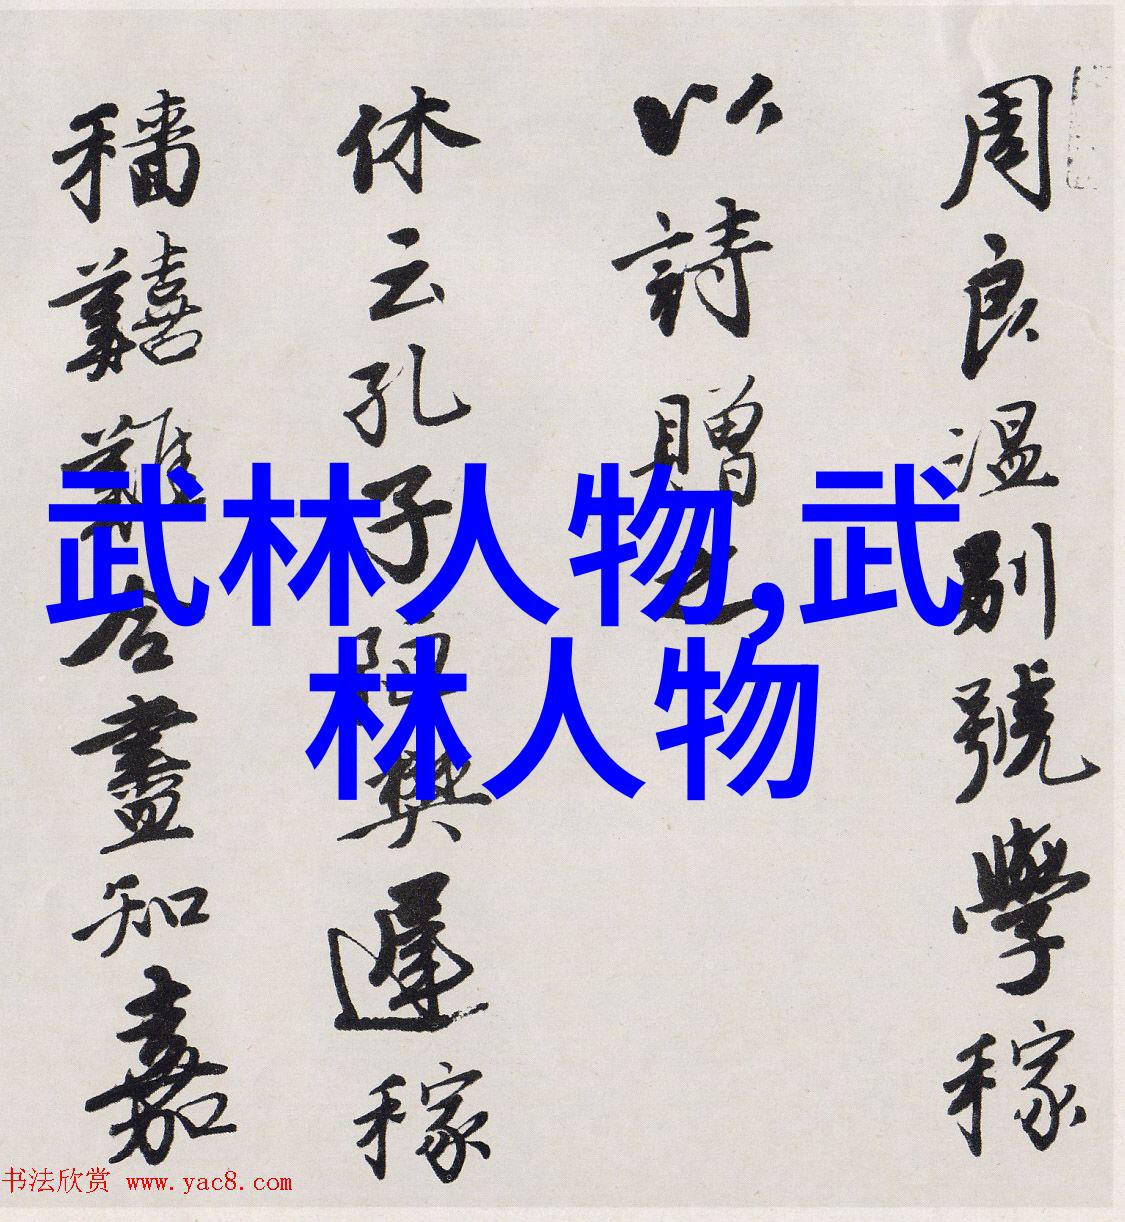 周良温別號學稼
以詩贈之
休云孔子陋樊遲稼
穡囏難君盡知嘉
武林人物,武
林人物
书法欣赏 www.yac8.com